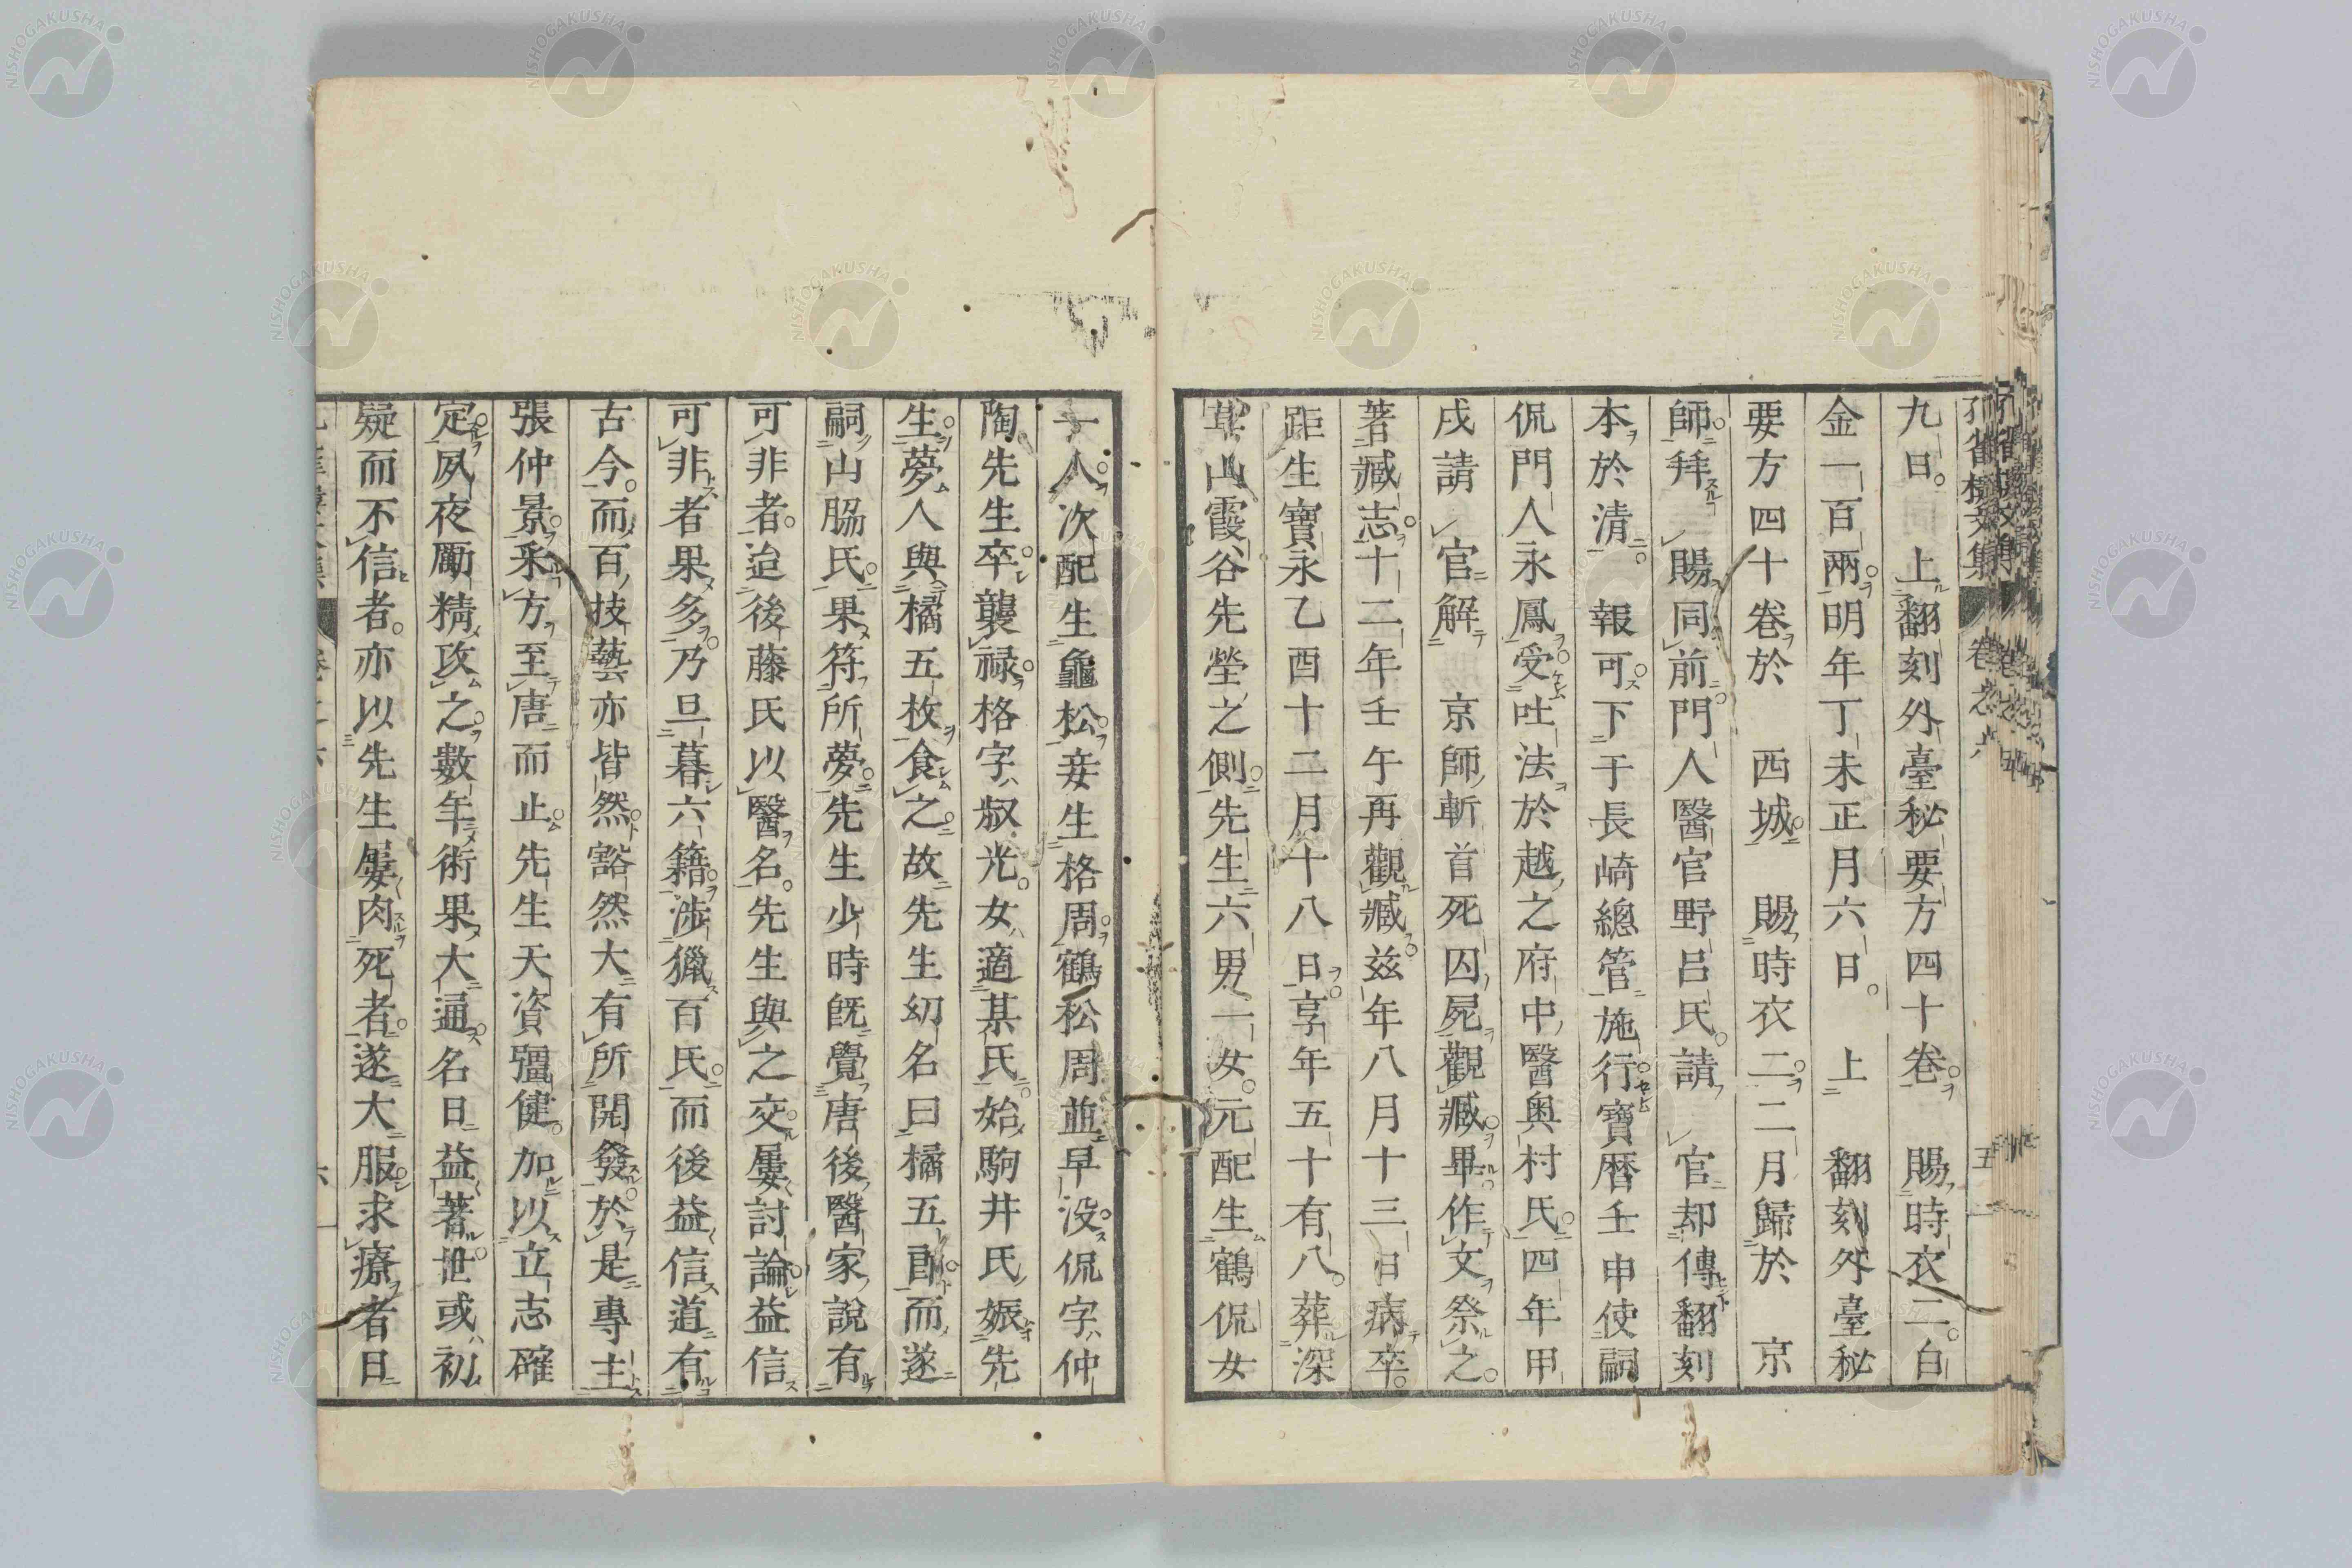 孔雀樓文集
卷之六
五
九日。上翻刻外臺秘要方四十卷。賜時衣二。白
金一百兩。明年丁未正月六日。上翻刻外臺秘
要方四十卷於西城。賜時衣二。二月歸於京
師。拜賜同前。門人醫官野呂氏。請官却傳翻刻
本於清。報可。下于長崎總管施行。寶曆壬申使嗣
侃門人永鳳受吐法於越之府中醫奧村氏。四年甲
戌請官解京師斬首死囚屍觀臟。畢。作文祭之。
著臟志。十二年壬午再觀臟。茲年八月十三日病卒。
距生寶永乙酉十二月十八日。享年五十有八。葬深
草山霞谷先塋之側。先生六男一女。元配生鶴侃女
一人。次配生龜松。妾生格周。鶴松周並早没。侃字仲
陶。先生卒。襲祿。格字叔光。女適某氏。始駒井氏娠先
生。夢人與橘五枚食之。故先生幼名曰橘五郎。而遂
嗣山脇氏。果符所夢。先生少時既覺唐後醫家說有
可非者。迨後藤氏以醫名。先生與之交。屢討論益信
可非者果多。乃旦暮六籍。涉獵百氏。而後益信道有
古今。而百技藝亦皆然。豁然大有所開發。於是專主
張仲景。采方至唐而止。先生天資彊健。加以立志確
定。夙夜勵精攻之。數年術果大通。名日益著世。或初
疑而不信者。亦以先生屢肉死者。遂大服。求療者日
六